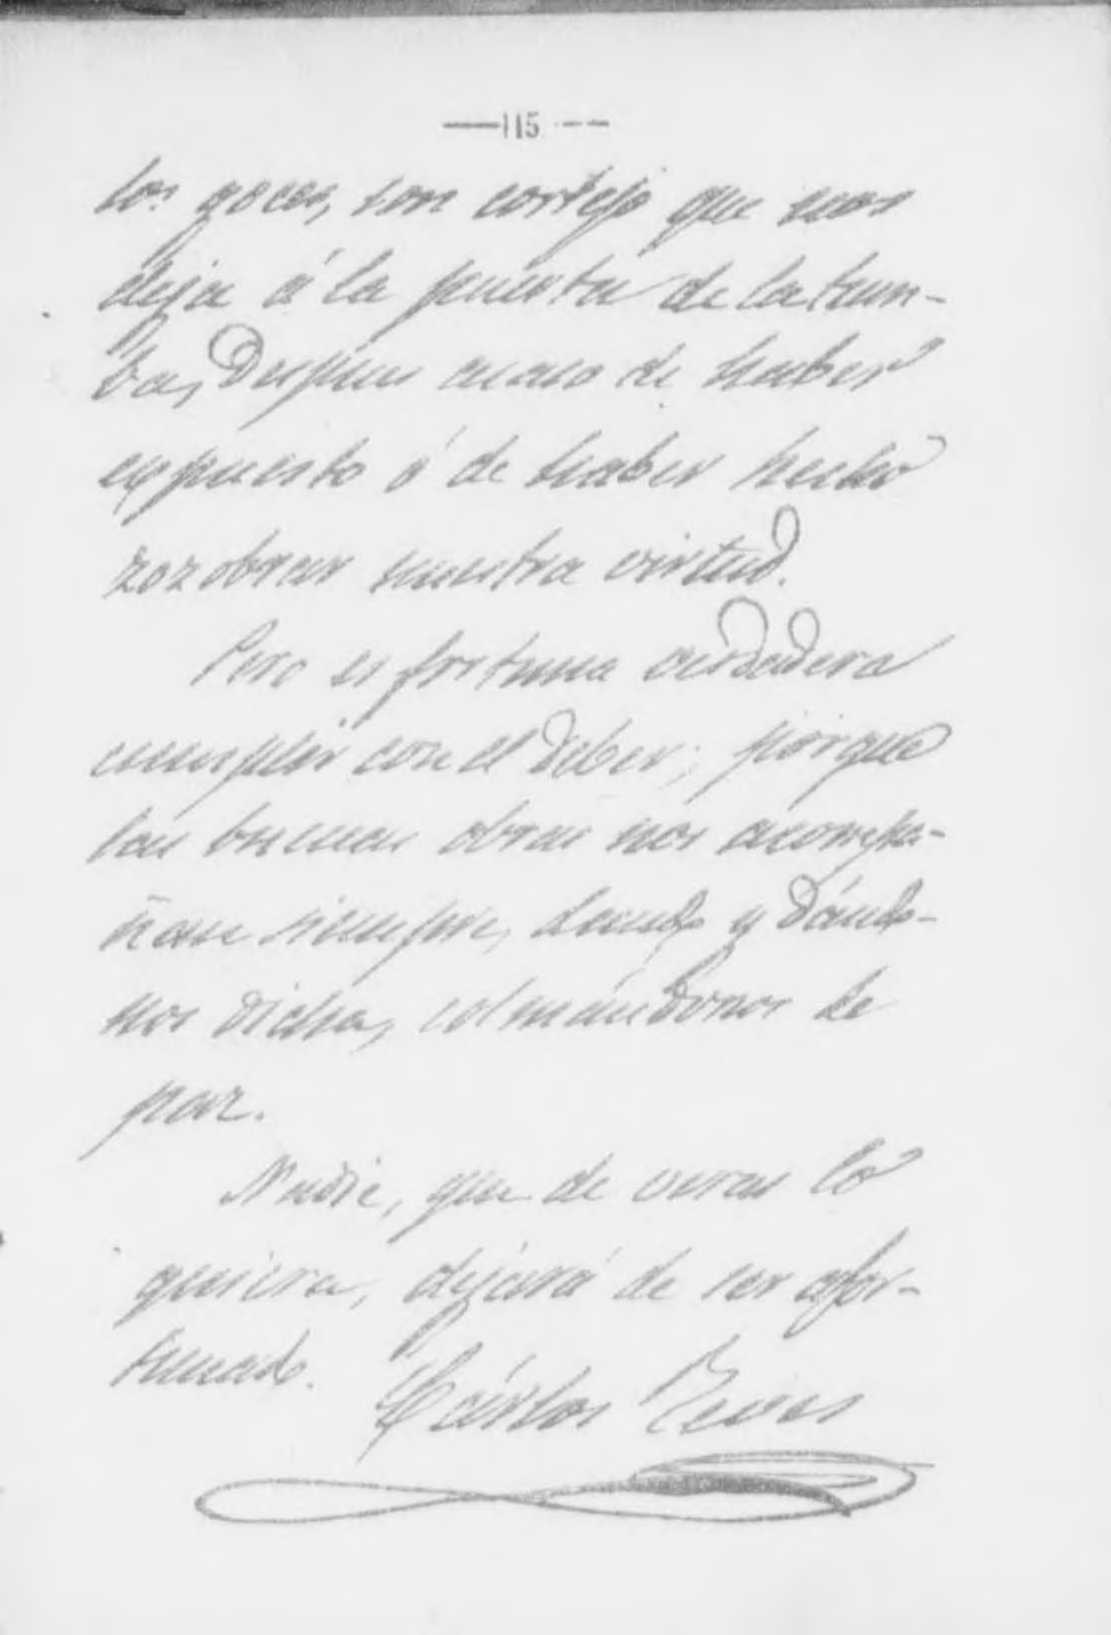 —115—
los goces, son cortejo que nos
deja á la puerta de la tum-
ba, Despues acaso de haber
expuesto ó de haber hecho
zozobrar nuestra virtud.
Pero es fortuna verdadera
cumplir con el deber; porque
las buenas obras nos acompa-
ñan siempre, dando y dándo-
nos dicha, colmándonos de
paz.
Nadie, que de veras lo
quiera, dejará de ser afor-
tunado.
Cárlos